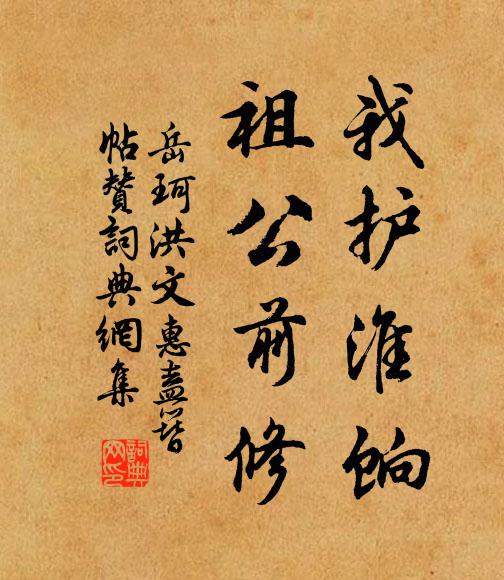 我护淮饷
祖公前修
岳珂洪文惠盍簪
帖赞词典網集
詞典网印